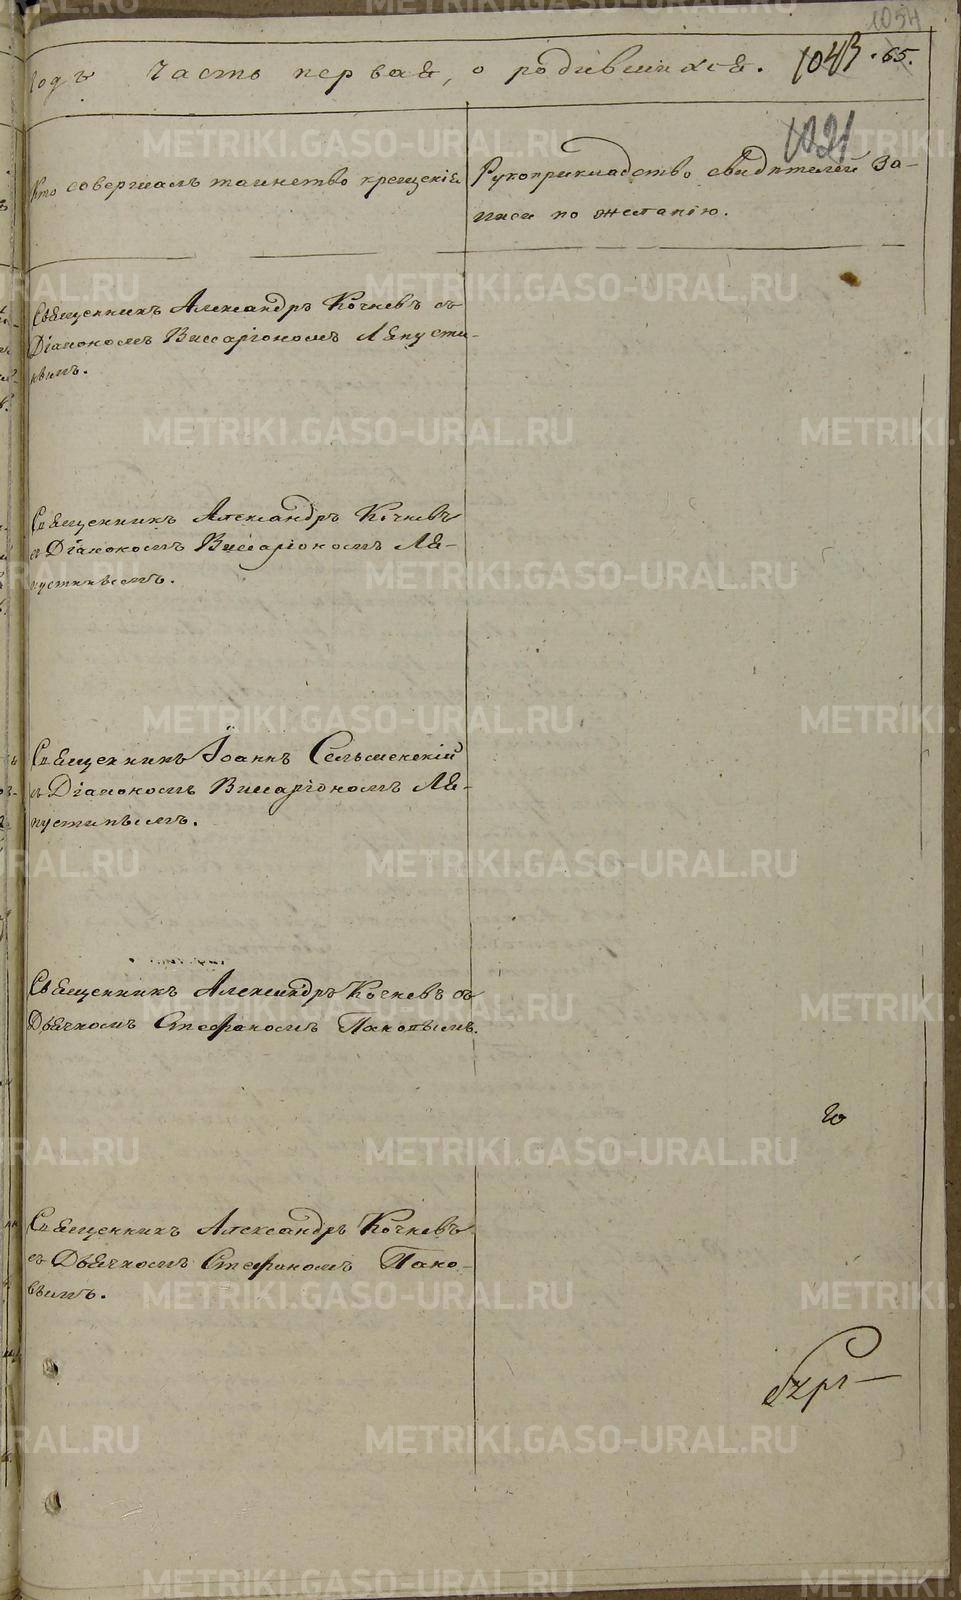 1054
годъ часть первая, о родившихся. 1043 . 65.
1021
Кто совершалъ таинство крещенія
Рукоприкладство свидѣтелей за-
писи по желанію.
Священникъ Александръ Кочневъ съ
Діакономъ Виссаріономъ Ляпусти-
нымъ.
Священникъ Александръ Кочневъ
съ Діакономъ Виссаріономъ Ля-
пустинымъ.
Священникъ Іоаннъ Сельменскій
съ Діакономъ Виссаріономъ Ля-
пустинымъ.
Священникъ Александръ Кочневъ съ
Дьячкомъ Стефаномъ Поповымъ.
Священникъ Александръ Кочневъ
съ Дьячкомъ Стефаномъ Попо-
вымъ.
METRIKI.GASO-URAL.RU